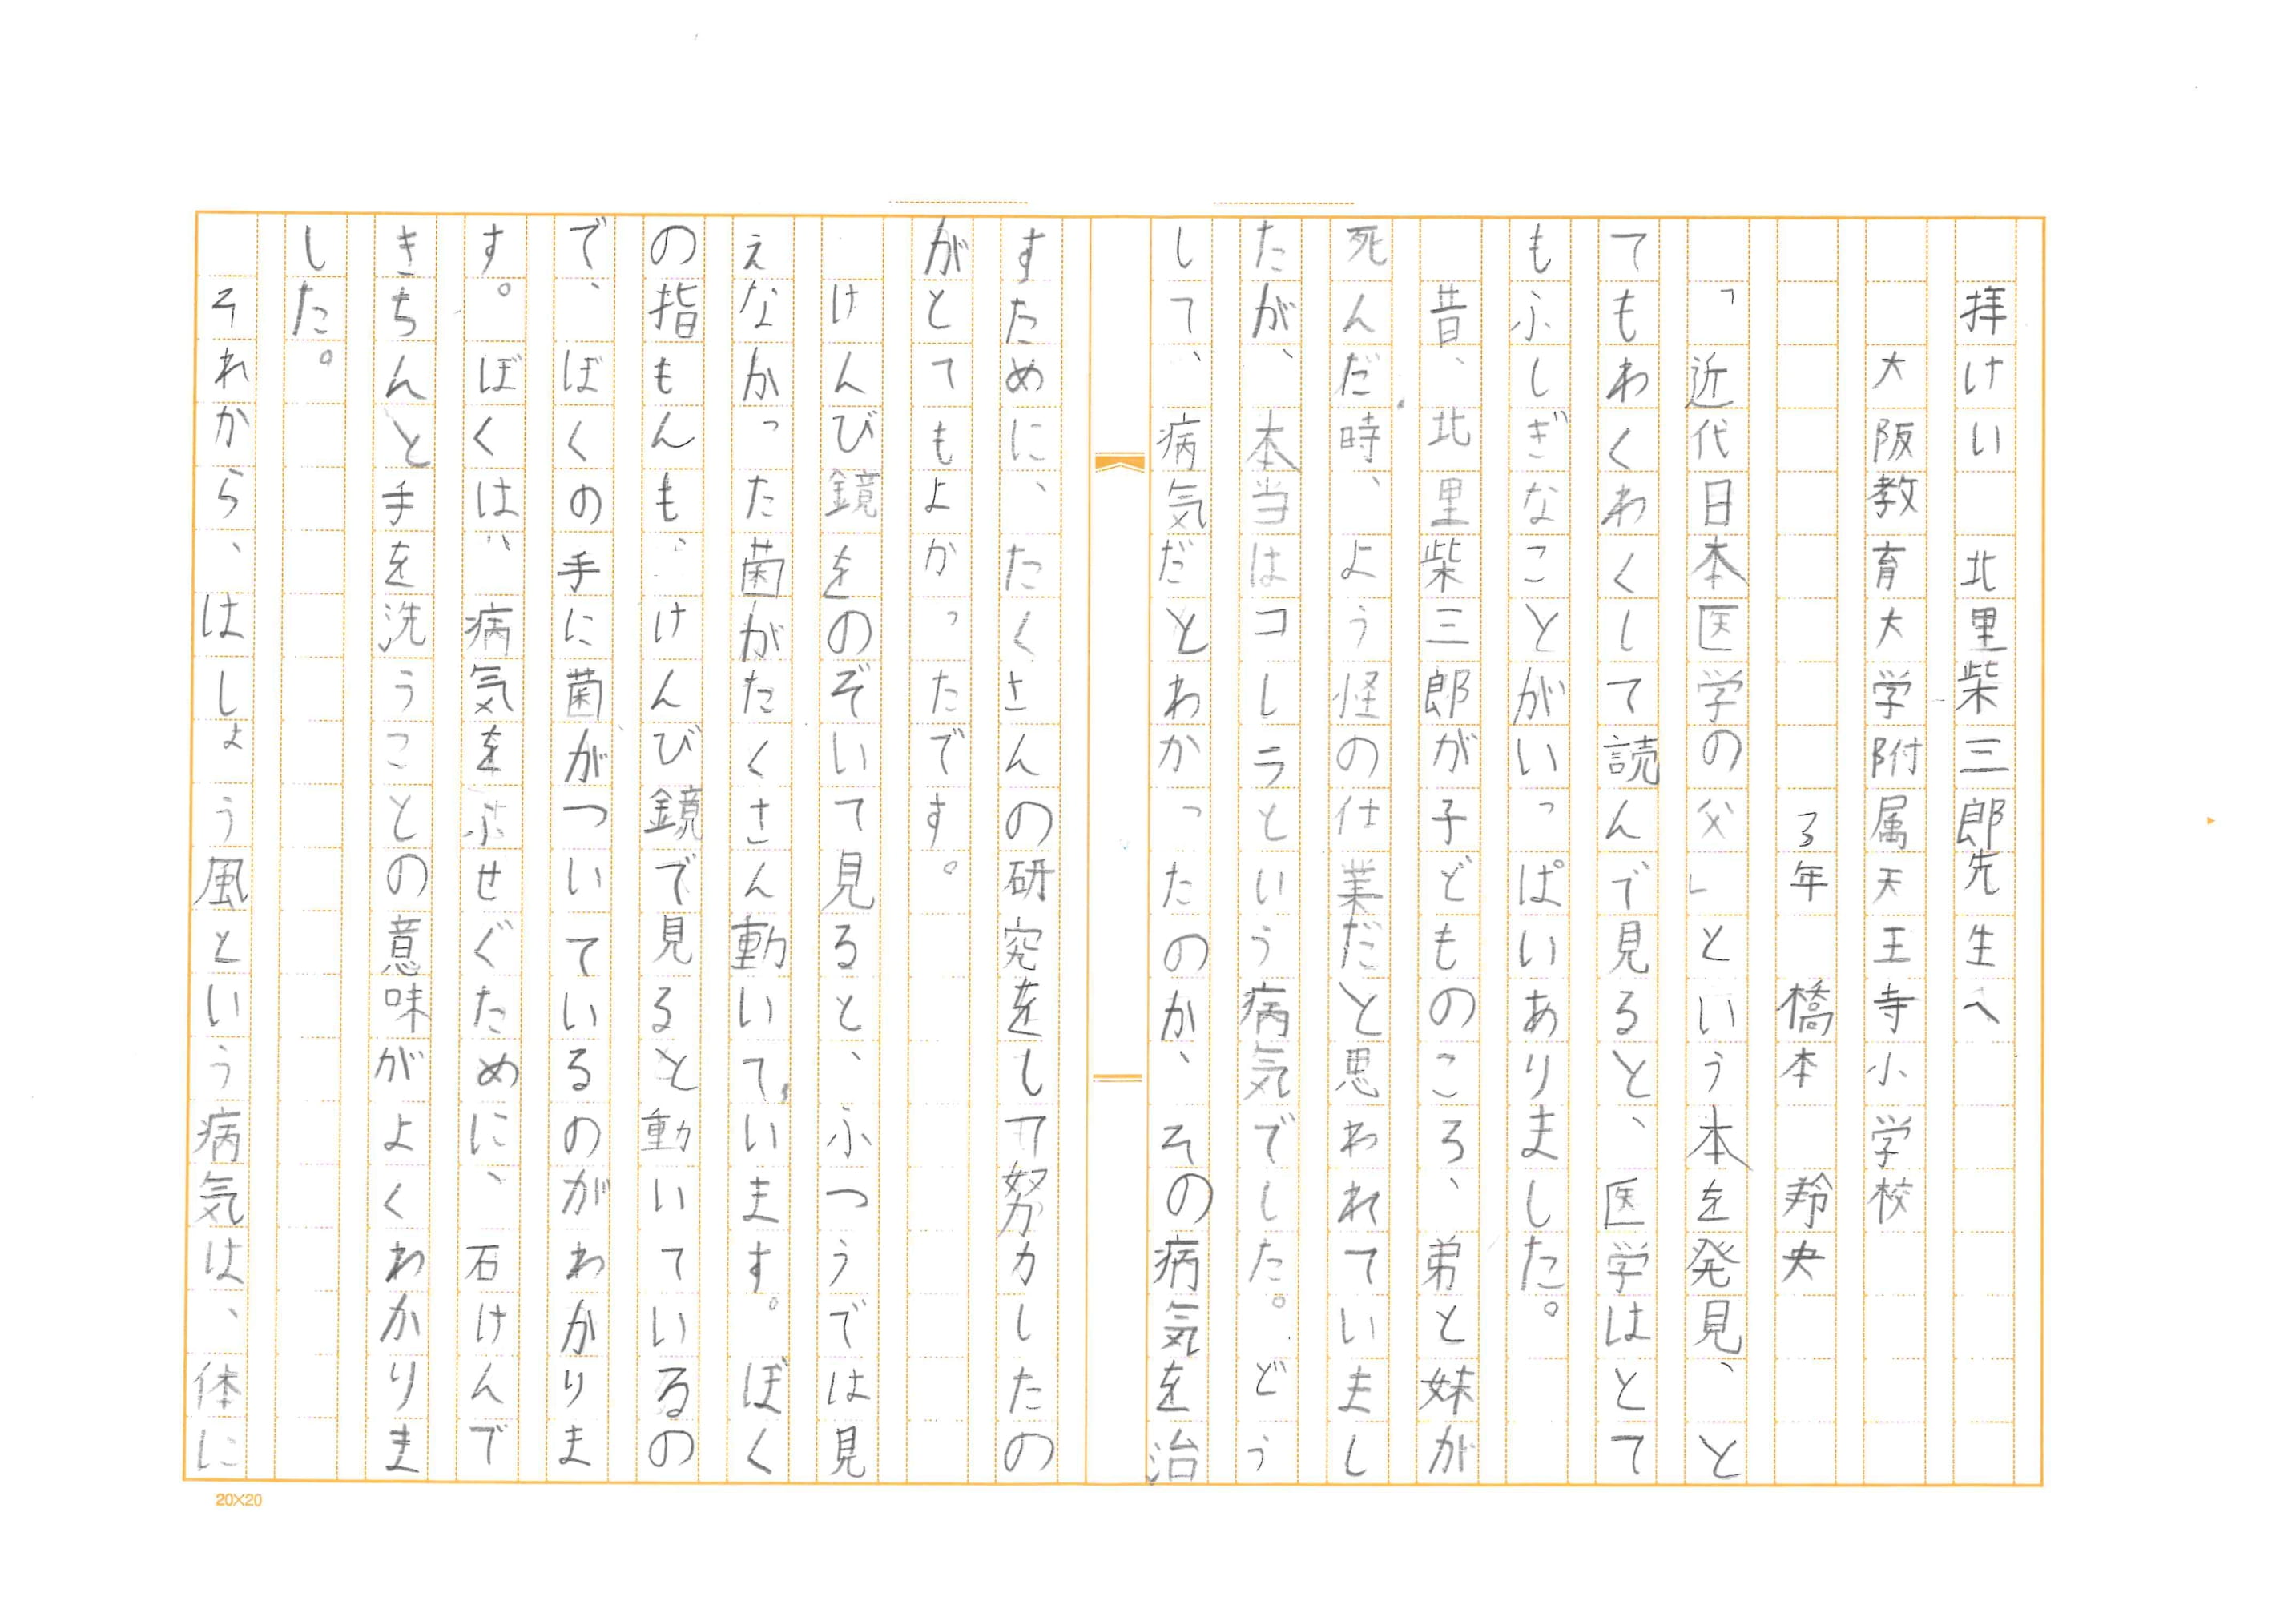 拝けい　北里柴三郎先生へ
大阪教育大学附属天王寺小学校
3年　橋本　羚央
「近代日本医学の父」という本を発見、と
てもわくわくして読んで見ると、医学はとて
もふしぎなことがいっぱいありました。
昔、北里柴三郎が子どものころ、弟と妹が
死んだ時、よう怪の仕業だと思われていまし
たが、本当はコレラという病気でした。どう
して、病気だとわかったのか、その病気を治
すために、たくさんの研究をして努力したの
がとてもよかったです。
けんび鏡をのぞいて見ると、ふつうでは見
えなかった菌がたくさん動いています。ぼく
の指もんも、けんび鏡で見ると動いているの
で、ぼくの手に菌がついているのがわかりま
す。ぼくは、病気をふせぐために、石けんで
きちんと手を洗うことの意味がよくわかりま
した。
それから、はしょう風という病気は、体に
20×20